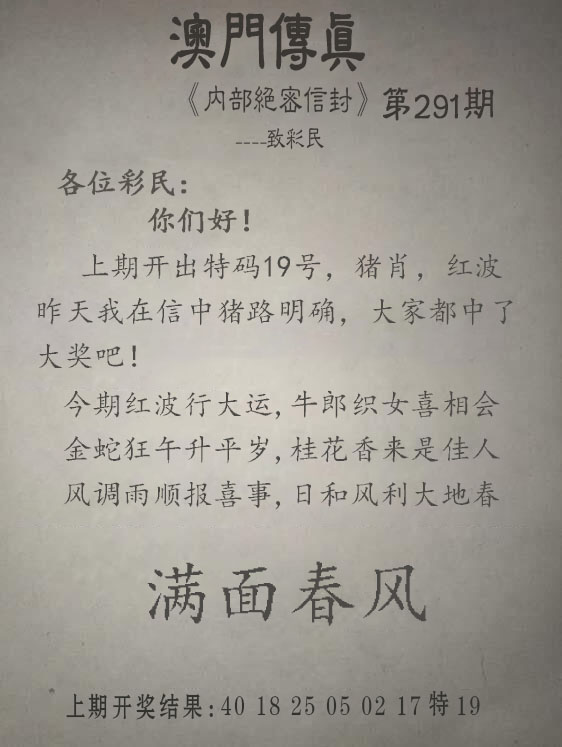 澳門傳眞
《内部絕密信封》第291期
----致彩民
各位彩民：
你们好！
上期开出特码19号，猪肖，红波
昨天我在信中猪路明确，大家都中了
大奖吧！
今期红波行大运,牛郎织女喜相会
金蛇狂午升平岁,桂花香来是佳人
风调雨顺报喜事,日和风利大地春
满面春风
上期开奖结果:40 18 25 05 02 17特19